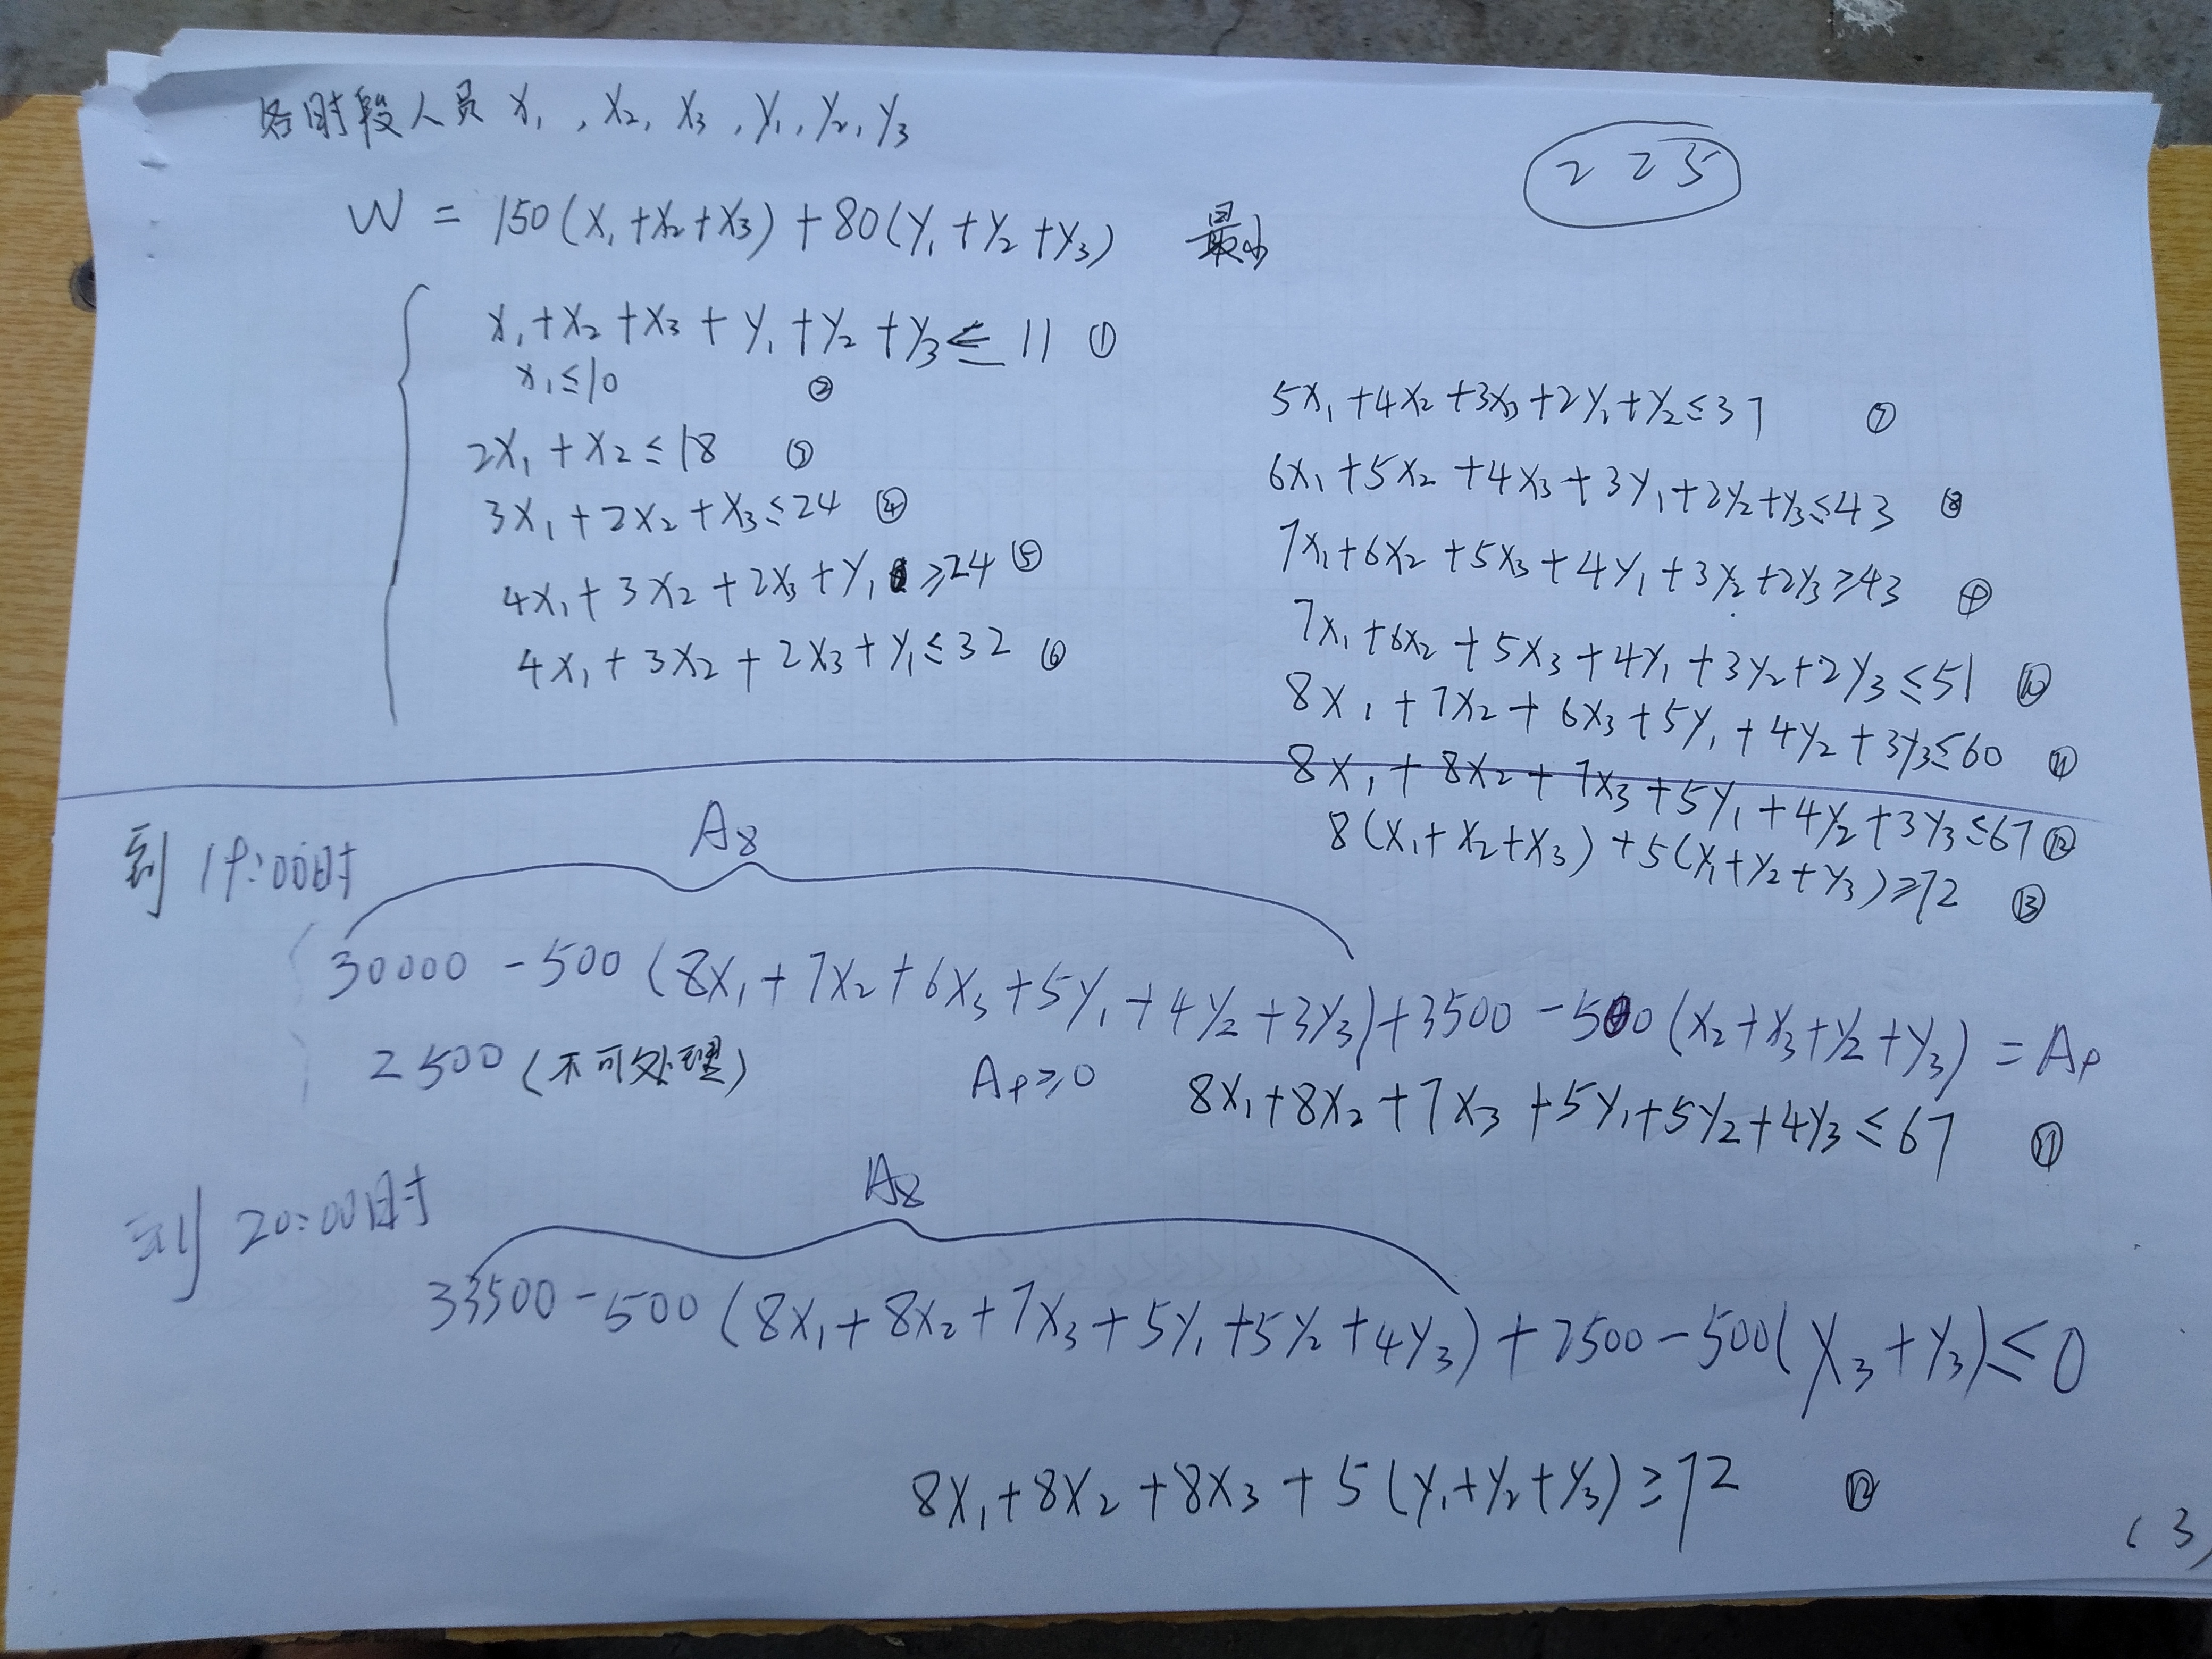 各时段人员 x₁, x₂, x₃, y₁, y₂, y₃
225
W = 150(x₁+x₂+x₃)+80(y₁+y₂+y₃) 最小
x₁+x₂+x₃+y₁+y₂+y₃≤11 ①
x₁≤10 ②
2x₁+x₂≤18 ③
3x₁+2x₂+x₃≤24 ④
4x₁+3x₂+2x₃+y₁≥24 ⑤
4x₁+3x₂+2x₃+y₁≤32 ⑥
5x₁+4x₂+3x₃+2y₁+y₂≤37 ⑦
6x₁+5x₂+4x₃+3y₁+2y₂+y₃≤43 ⑧
7x₁+6x₂+5x₃+4y₁+3y₂+2y₃≥43 ⑨
7x₁+6x₂+5x₃+4y₁+3y₂+2y₃≤51 ⑩
8x₁+7x₂+6x₃+5y₁+4y₂+3y₃≤60 ⑪
8x₁+8x₂+7x₃+5y₁+4y₂+3y₃≤67 ⑫
8(x₁+x₂+x₃)+5(y₁+y₂+y₃)≥72 ⑬
到19:00时
A₈
30000-500(8x₁+7x₂+6x₃+5y₁+4y₂+3y₃)+3500-500(x₂+x₃+y₂+y₃)=A₉
2500(不可处理)
A₉≥0
8x₁+8x₂+7x₃+5y₁+5y₂+4y₃≤67 ⑪
到20:00时
A₈
33500-500(8x₁+8x₂+7x₃+5y₁+5y₂+4y₃)+2500-500(x₃+y₃)≤0
8x₁+8x₂+8x₃+5(y₁+y₂+y₃)≥72 ⑫
(3)